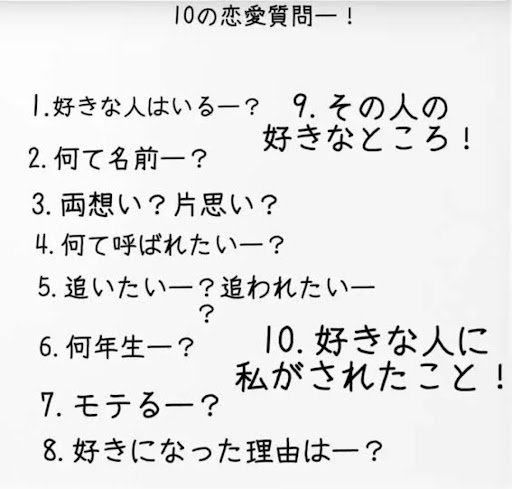 10の恋愛質問ー！
1.好きな人はいるー？
2.何て名前ー？
3.両想い？片思い？
4.何て呼ばれたいー？
5.追いたいー？追われたいー
？
6.何年生ー？
7.モテるー？
8.好きになった理由はー？
9.その人の
好きなところ！
10.好きな人に
私がされたこと！